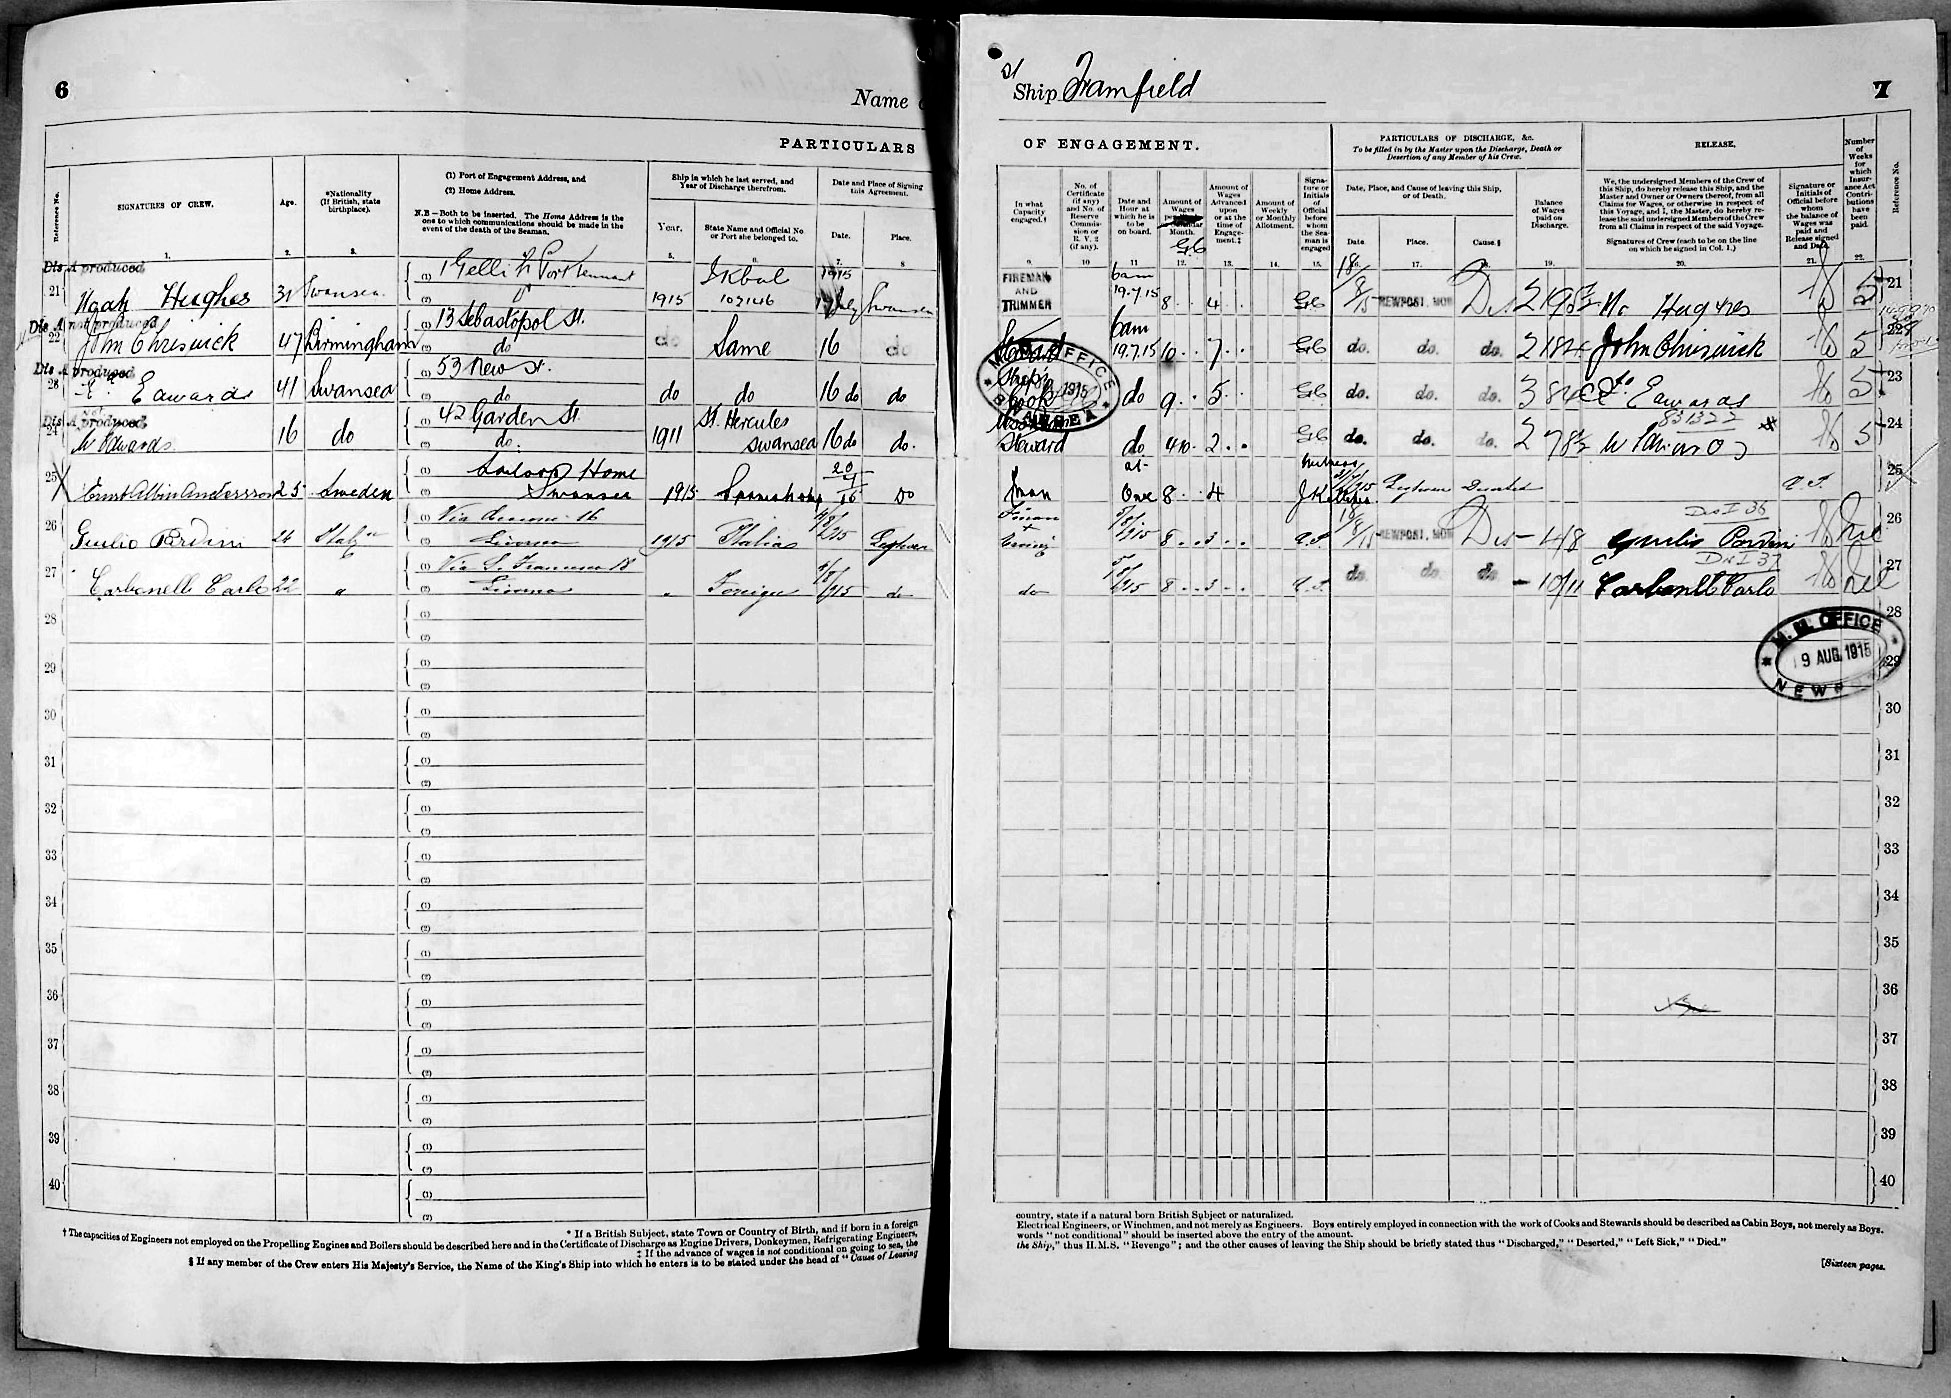 6
Name
PARTICULARS
Reference No.
SIGNATURES OF CREW.
Age.
*Nationality
(If British, state
birthplace).
(1) Port of Engagement Address, and
(2) Home Address.
N.B—Both to be inserted. The Home Address is the
one to which communications should be made in the
event of the death of the Seaman.
Ship in which he last served, and
Year of Discharge therefrom.
Year.
State Name and Official No.
or Port she belonged to.
Date and Place of Signing
this Agreement.
Date.
Place.
1.
2.
3.
5.
6.
7.
8
Dis A produced
21
Hughes
31
Swansea
(1)
(2)
1915
107146
Swansea
Dis A not produced
22
John Chiswick
47
Birmingham
(1) 13 Sebastopol St.
(2) do
do
Same
16
do
Dis A produced
23
Edwards
41
Swansea
(1) 53 New St.
(2) do
do
do
16 do
do
Dis A produced
24
W Edwards
16
do
(1) 42 Garden St
(2) do.
1911
St. Hercules
Swansea
16 do
do.
25
Ernst Albin Andersson
25
Sweden
(1) Sailors Home
(2) Swansea
1915
do
26
Giulio Pardini
26
(1) Via 16
(2) Livorno
1915
Italia
Leghorn
27
Carbonelli Carlo
22
(1) Via S. Francesco 18
(2) Livorno
Foreign
do
28
(1)
(2)
29
(1)
(2)
30
(1)
(2)
31
(1)
(2)
32
(1)
(2)
33
(1)
(2)
34
(1)
(2)
35
(1)
(2)
36
(1)
(2)
37
(1)
(2)
38
(1)
(2)
39
(1)
(2)
40
(1)
(2)
* If a British Subject, state Town or Country of Birth, and if born in a foreign
† The capacities of Engineers not employed on the Propelling Engines and Boilers should be described here and in the Certificate of Discharge as Engine Drivers, Donkeymen, Refrigerating Engineers,
‡ If the advance of wages is not conditional on going to sea, the
§ If any member of the Crew enters His Majesty's Service, the Name of the King's Ship into which he enters is to be stated under the head of "Cause of Leaving
7
Ship Framfield
OF ENGAGEMENT.
PARTICULARS OF DISCHARGE, &c.
To be filled in by the Master upon the Discharge, Death or
Desertion of any Member of his Crew.
RELEASE.
Number
of
Weeks
for
which
Insur-
ance Act
Contri-
butions
have
been
paid.
Reference No.
In what
Capacity
engaged.†
No. of
Certificate
(if any)
and No. of
Reserve
Commis-
sion or
R. V. 2
(if any).
Date and
Hour at
which he is
to be
on board.
Amount of
Wages
Month.
Amount of
Wages
Advanced
upon
or at the
time of
Engage-
ment.‡
Amount of
Weekly
or Monthly
Allotment.
Signa-
ture or
Initials
of
Official
before
whom
the Sea-
man is
engaged
Date, Place, and Cause of leaving this Ship,
or of Death.
Date
Place.
Cause.§
Balance
of Wages
paid on
Discharge.
We, the undersigned Members of the Crew of
this Ship, do hereby release this Ship, and the
Master and Owner or Owners thereof, from all
Claims for Wages, or otherwise in respect of
this Voyage, and I, the Master, do hereby re-
lease the said undersigned Members of the Crew
from all Claims in respect of the said Voyage.
Signatures of Crew (each to be on the line
on which he signed in Col. 1.)
Signature or
Initials of
Official before
whom
the balance of
Wages was
paid and
Release signed
and Date.
9.
10
11
12.
13.
14.
15.
16.
17.
18.
19.
20.
21.
22.
FIREMAN
AND
TRIMMER
6am
19.7.15
8
4
NEWPORT, MON
Hughes
5
21
6am
19.7.15
10
7
do.
do.
do.
John Chiswick
5
22
Ship's
Cook
do
9
5
do.
do.
do.
Edwards
5
23
Steward
do
2
do.
do.
do.
831322
5
24
at
Once
8
4
Witness
Leghorn
Deserted
25
8
3
NEWPORT, MON
Dis I 36
Giulio Pardini
nil
26
do
8
3
do.
do.
do
10/11
Dis I 37
Carbonelli Carlo
nil
27
M. M. OFFICE
1915
SWANSEA
M. M. OFFICE
19 AUG. 1915
NEWPORT
28
29
30
31
32
33
34
35
36
37
38
39
40
country, state if a natural born British Subject or naturalized.
Electrical Engineers, or Winchmen, and not merely as Engineers. Boys entirely employed in connection with the work of Cooks and Stewards should be described as Cabin Boys, not merely as Boys.
words "not conditional" should be inserted above the entry of the amount.
the Ship," thus H.M.S. "Revenge"; and the other causes of leaving the Ship should be briefly stated thus "Discharged," "Deserted," "Left Sick," "Died."
[Sixteen pages.